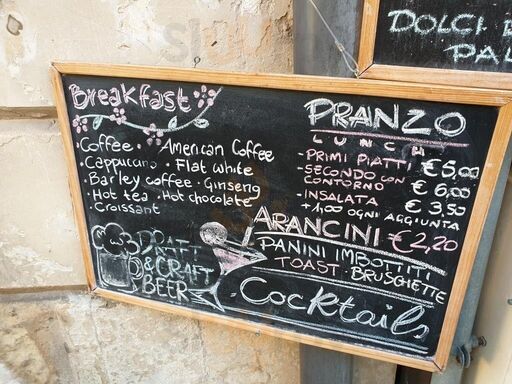 DOLCI
PAL
Breakfast
• Coffee • American Coffee
• Cappuccino • Flat white
• Barley coffee • Ginseng
• Hot tea • Hot chocolate
Croissant
DRAFT
& CRAFT
BEER
PRANZO
LUNCH
- PRIMI PIATTI €5,00
- SECONDO CON
CONTORNO €6,00
- INSALATA €3,50
+1,00 OGNI AGGIUNTA
ARANCINI - €2,20
PANINI IMBOTTITI
TOAST - BRUSCHETTE
Cocktails